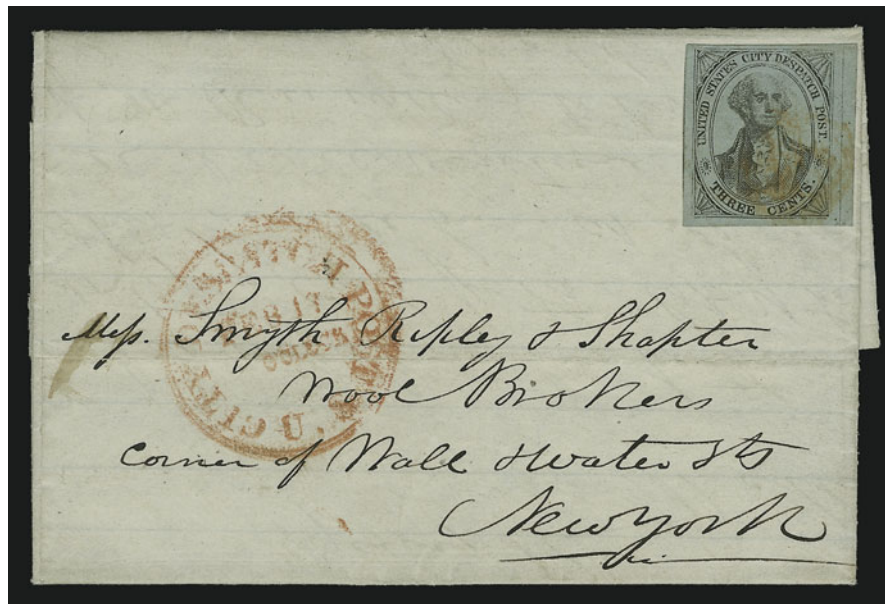 UNITED STATES CITY DESPATCH POST.
THREE CENTS.
U.S. CITY DESPATCH POST
17
O'CLOCK
Mess. Smyth Ripley & Shapter
Wool Brokers
Corner of Wall & Water Sts
New York